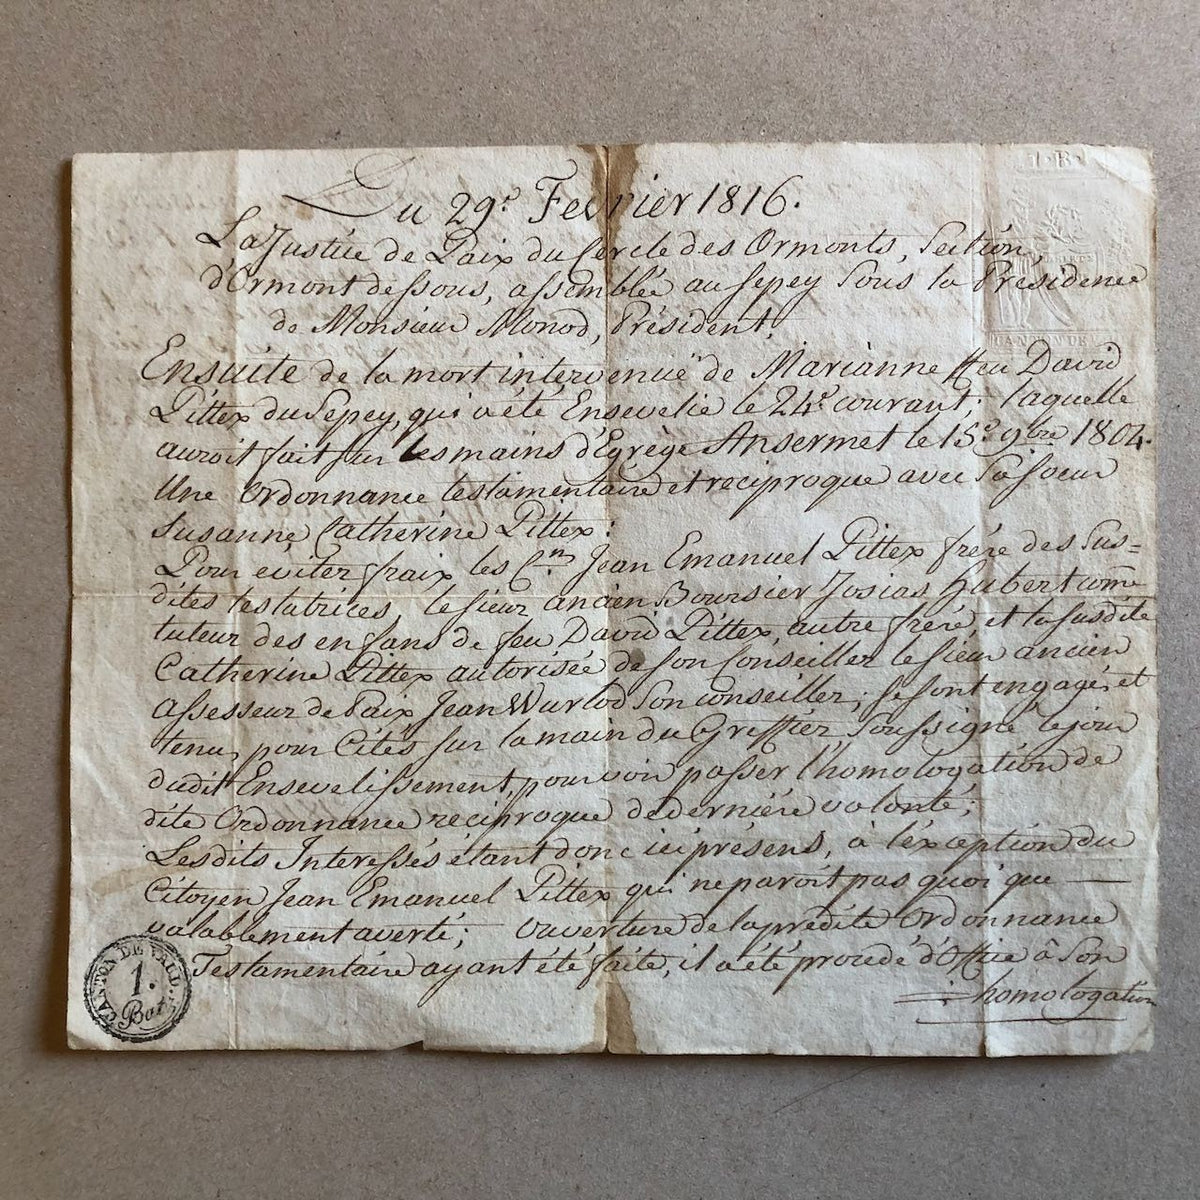 1. B.
LIBERTE
CANTON DE
Du 29.e Fevrier 1816.
La Justice de Paix du Cercle des Ormonts, Section
d'Ormont dessous, assemblée au Sepey sous la Présidence
de Monsieur Monod, Président,
Ensuite de la mort intervenuë de Marianne ffeu David
Pittex du Sepey, qui a été Ensevelie le 24.e courant; laquelle
auroit fait sur les mains d'Egrège Ansermet le 15.e 9bre 1804.
Une Ordonnance testamentaire et reciproque avec Sa soeur
Susanne Catherine Pittex:
Pour eviter fraix les C.ns Jean Emanuel Pittex frére des Sus=
dites testatrices, le sieur ancien Boursier Josias Hubert come
tuteur des enfans de feu David Pittex, autre frére, et la susdite
Catherine Pittex autorisée de son Conseiller le siéur ancien
assesseur de Paix Jean Wurlod Son conseiller; se sont engagés et
tenu pour Cités sur la main du Greffier Soussigné le jour
dudit Ensevelissement, pour voir passer l'homologation de
dite Ordonnance reciproque de derniére volonté;
Lesdits Interessés étant donc ici présens, à l'exception du
Citoyen Jean Emanuel Pittex qui ne paroit pas quoi que
valablement averti; Ouverture de la predite Ordonnance
Testamentaire ayant été faite, il a été procedé d'Office à Son
homologation
CANTON DE VAUD.
1.
Batz